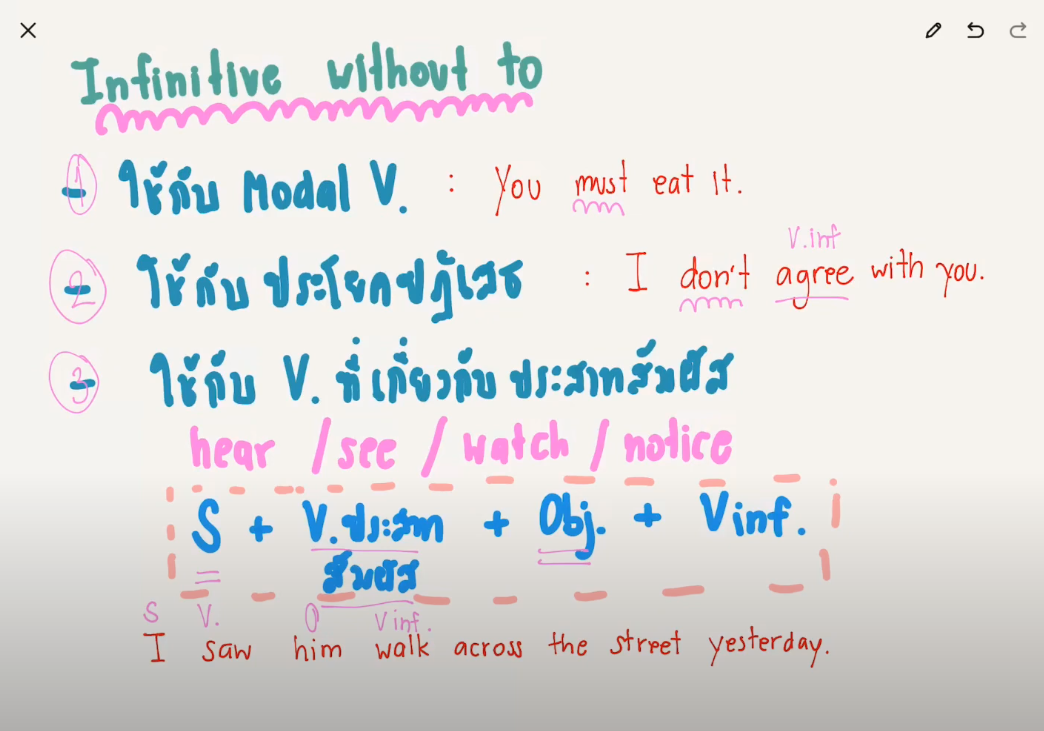 Infinitive without to
1 - ใช้กับ Modal V. : You must eat it.
V.inf
2 - ใช้กับ ประโยคปฏิเสธ : I don't agree with you.
3 - ใช้กับ V. ที่เกี่ยวกับ ประสาทสัมผัส
hear / see / watch / notice
S + V.ประสาท + Obj. + V inf.
สัมผัส
S V. O V inf.
I saw him walk across the street yesterday.